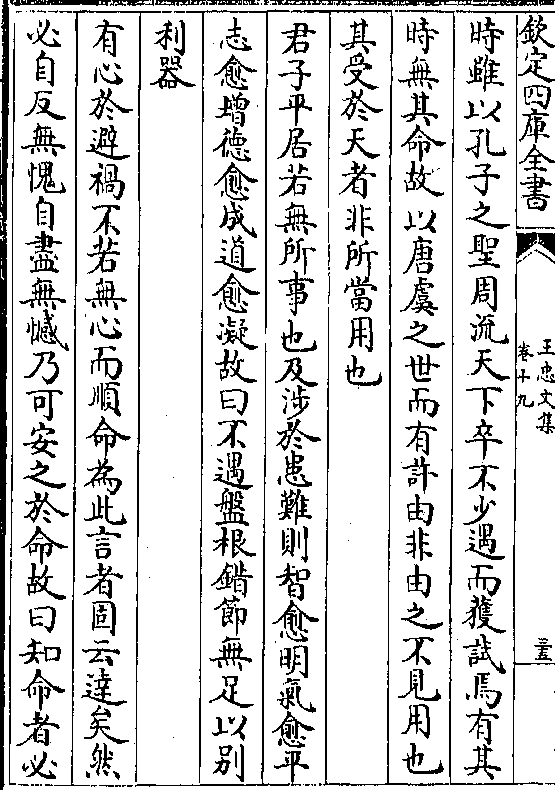 欽定四庫全書
王忠文集
卷十九
三五
時雖以孔子之聖周流天下卒不少遇而獲試焉有其
時無其命故以唐虞之世而有許由非由之不見用也
其受於天者非所當用也
君子平居若無所事也及涉於患難則智愈明氣愈平
志愈增德愈成道愈凝故曰不遇盤根錯節無足以別
利器
有心於避禍不若無心而順命為此言者固云達矣然
必自反無愧自盡無憾乃可安之於命故曰知命者必